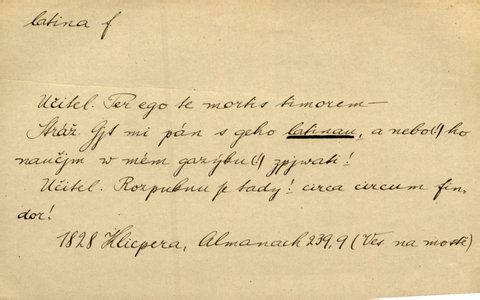 latina f
Učitel. Per ego te mortis timorem —
Stráž. Gjt mi pán s geho latinau, a nebo(!) ho
naučjm w mém gazyku(!) zpjwati!
Učitel. Rozpuknu se tady! circa circum fin-
dor!
1828 Klicpera, Almanach 239,9 (Ves. na mostě)